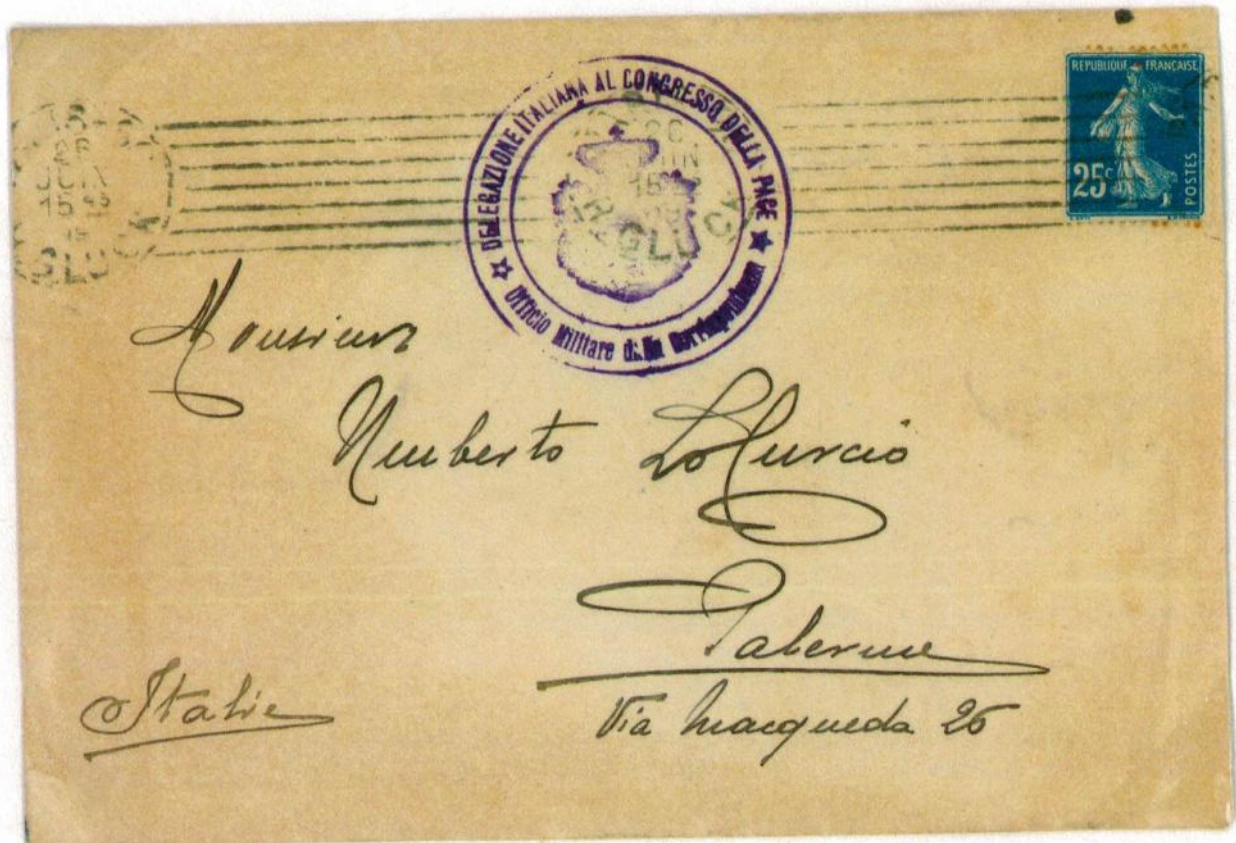 REPUBLIQUE FRANCAISE
25c
POSTES
DELEGAZIONE ITALIANA AL CONGRESSO DELLA PACE
Ufficio Militare della Corrispondenza
Monsieur
Umberto Lo Curcio
Palerme
Via Macqueda 26
Italie